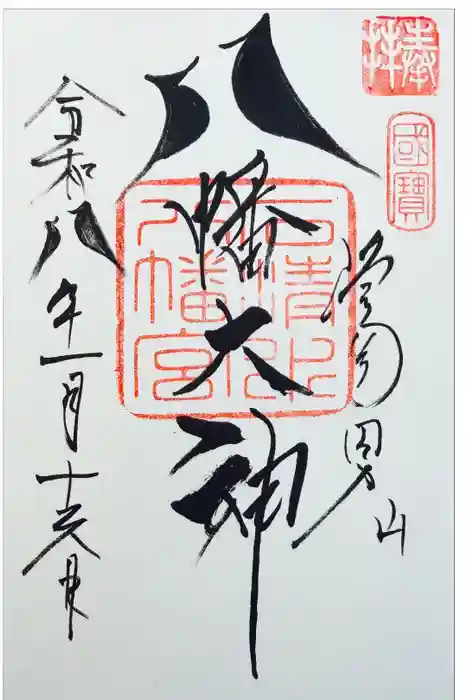 奉拝
國寶
男山
八幡大神
石清水八幡宮
令和八年一月十六日